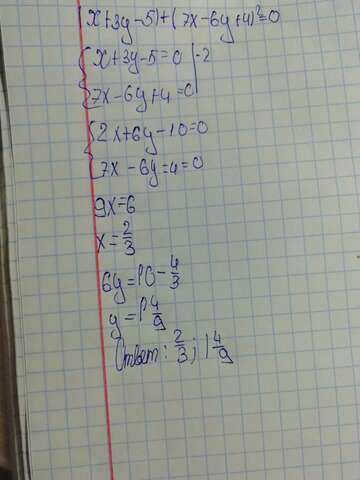 |x+3y-5|+(7x-6y+4)²=0
{x+3y-5=0 |·2
{7x-6y+4=0|
{2x+6y-10=0
{7x-6y=4=0
9x=6
x=2/3
6y=10-4/3
y=1 4/9
Ответ: 2/3; 1 4/9